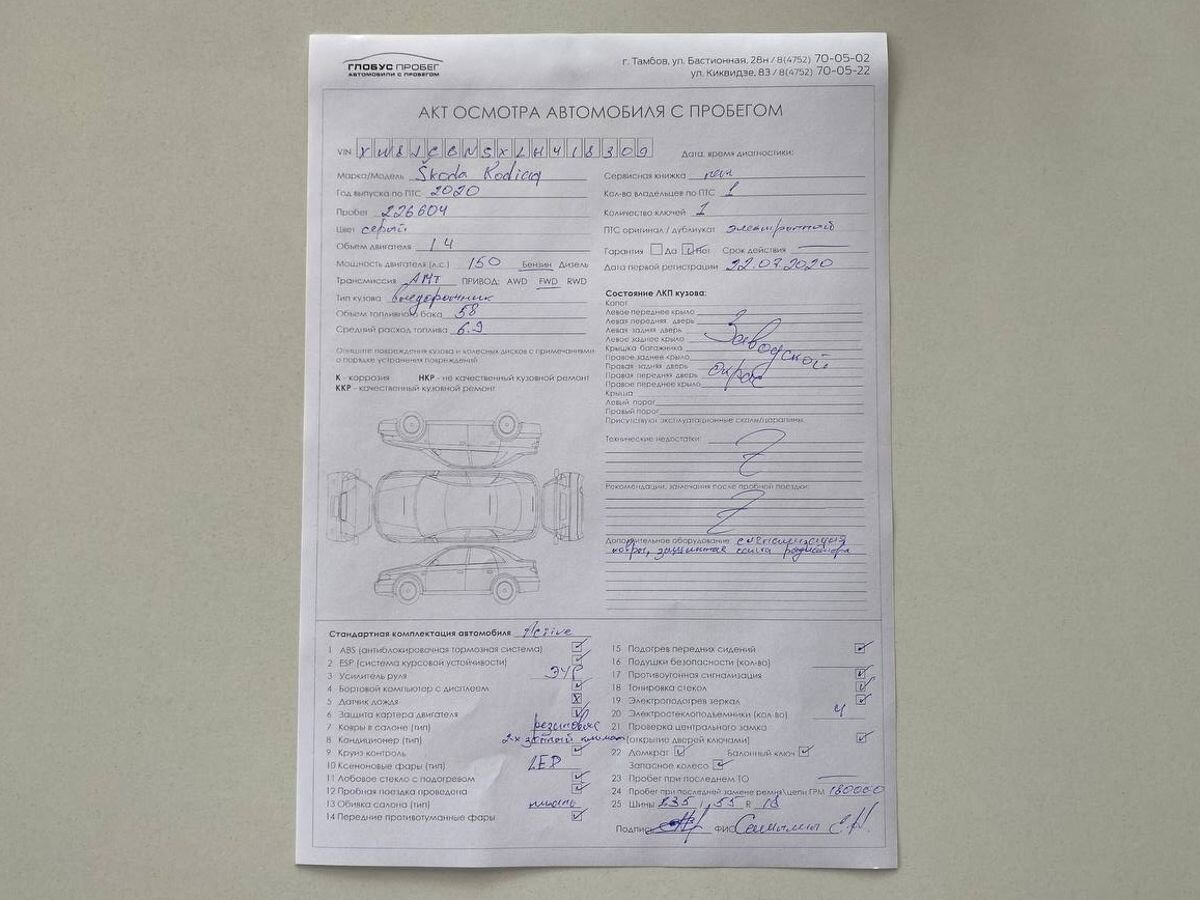 ГЛОБУС ПРОБЕГ
АВТОМОБИЛИ С ПРОБЕГОМ
г. Тамбов, ул. Бастионная, 28н / 8(4752) 70-05-02
ул. Киквидзе, 83 / 8(4752) 70-05-22
АКТ ОСМОТРА АВТОМОБИЛЯ С ПРОБЕГОМ
VIN XW8JC6NSXLH418309
Дата, время диагностики:
Марка/Модель Škoda Kodiaq
Год выпуска по ПТС 2020
Пробег 226604
Цвет серый
Объем двигателя 1 4
Мощность двигателя (л.с.) 150 Бензин Дизель
Трансмиссия ПРИВОД: AWD FWD RWD
Тип кузова внедорожник
Объем топливного бака 58
Средний расход топлива 6.9
Опишите повреждения кузова и колесных дисков с примечаниями
о порядке устранения повреждений
К - коррозия НКР - не качественный кузовной ремонт
ККР - качественный кузовной ремонт
Сервисная книжка
Кол-во владельцев по ПТС 1
Количество ключей 1
ПТС оригинал / дубликат электронный
Гарантия Да Нет Срок действия
Дата первой регистрации 22.07.2020
Состояние ЛКП кузова:
Капот
Левое переднее крыло
Левая передняя дверь
Левая задняя дверь
Левое заднее крыло
Крышка багажника
Правое заднее крыло
Правая задняя дверь
Правая передняя дверь
Правое переднее крыло
Крыша
Левый порог
Правый порог
Заводской
окрас
Присутствуют эксплуатационные сколы/царапины.
Технические недостатки:
Рекомендации, замечания после пробной поездки:
Дополнительное оборудование сигнализация
ковры, защитная сетка радиатора
Стандартная комплектация автомобиля Active
1 ABS (антиблокировочная тормозная система)
2 ESP (система курсовой устойчивости)
3 Усилитель руля ЭУР
4 Бортовой компьютер с дисплеем
5 Датчик дождя
6 Защита картера двигателя
7 Ковры в салоне (тип) резиновые
8 Кондиционер (тип) 2х зонный климат
9 Круиз контроль
10 Ксеноновые фары (тип) LED
11 Лобовое стекло с подогревом
12 Пробная поездка проводона
13 Обивка салона (тип) ткань
14 Передние противотуманные фары
15 Подогрев передних сидений
16 Подушки безопасности (кол-во)
17 Противоугонная сигнализация
18 Тонировка стекол
19 Электроподогрев зеркал
20 Электростеклоподъемники (кол-во) 4
21 Проверка центрального замка
(открытие дверей ключами)
22 Домкрат Балонный ключ
Запасное колесо
23 Пробег при последнем ТО
24 Пробег при последней замене ремня\цепи ГРМ 180000
25 Шины 235 / 55 R 18
Подпись ФИО